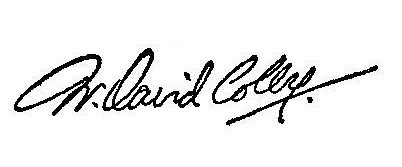 W. David Colley.